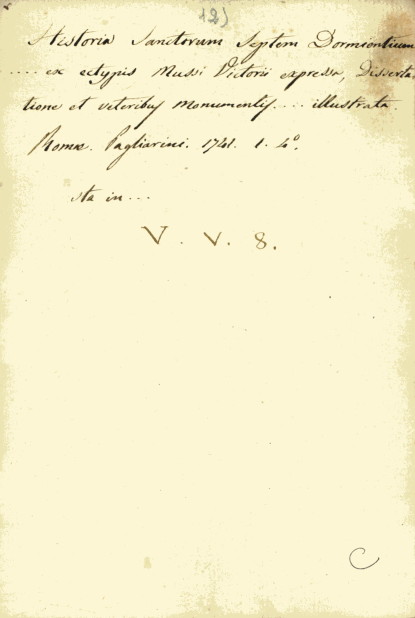 12)
Historia Sanctorum Septem Dormientium
.... ex ectypis Musei Victorii expressa, Disserta
tione et veteribus monumentis .... illustrata.
Romæ. Pagliarini. 1741. 1. 4°.
sta in...
V. V. 8.
C